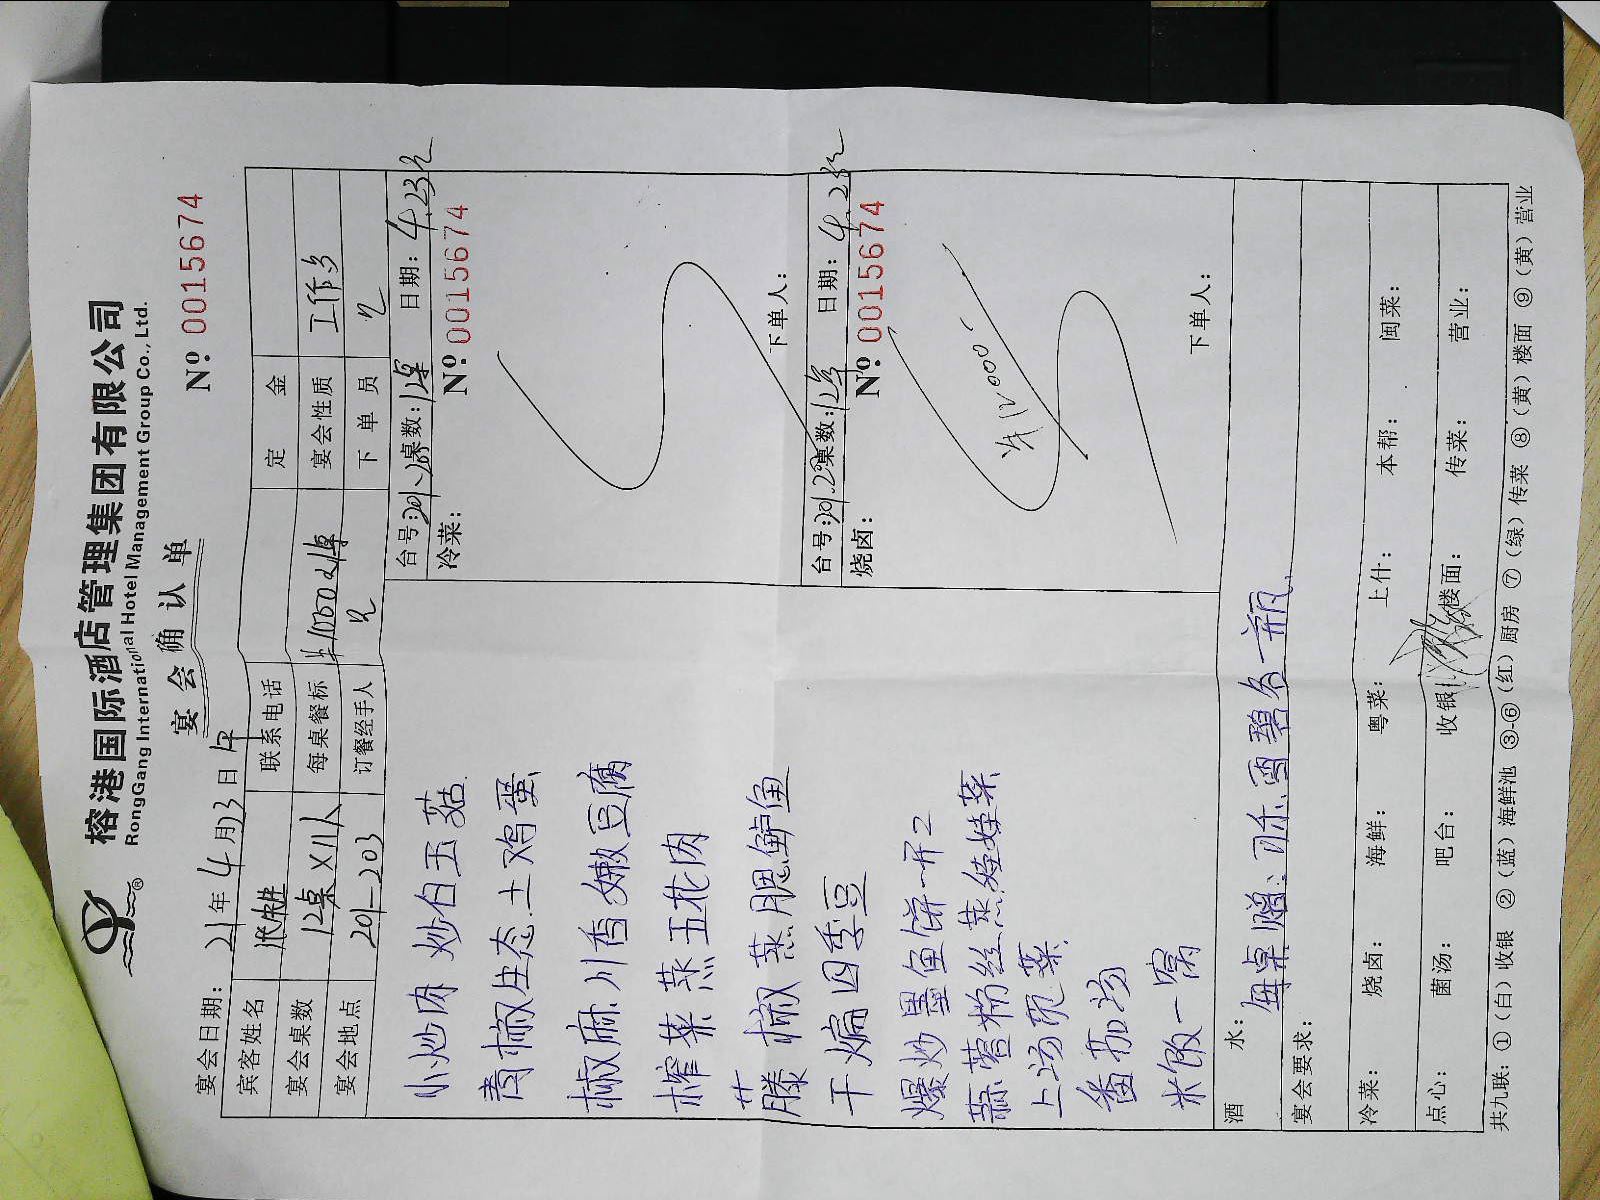 榕港国际酒店管理集团有限公司
RongGang International Hotel Management Group Co., Ltd.
®
宴会确认单
Nº 0015674
宴会日期： 21 年 4 月 23 日
宾客姓名 联系电话 定金
宴会桌数 12桌×11人 每桌餐标 宴会性质 工作
宴会地点 201-203 订餐经手人 下单员
台号： 桌数：12桌 日期：4.23
冷菜： Nº 0015674
下单人：
台号： 桌数：12 日期：4.23
烧卤： Nº 0015674
12000
下单人：
小炒肉炒白玉菇
青椒生态土鸡蛋
椒麻川香嫩豆腐
榨菜蒸五花肉
藤椒蒸腮鲈鱼
干煸四季豆
爆炒墨鱼饼一开2
蒜蓉粉丝蒸娃娃菜
上汤苋菜
番茄汤
米饭一窝
酒水： 每桌赠:可乐.雪碧各一瓶.
宴会要求：
冷菜： 烧卤： 海鲜： 粤菜： 上什： 本帮： 闽菜：
点心： 菌汤： 吧台： 收银： 楼面： 传菜： 营业：
共九联：①（白）收银 ②（蓝）海鲜池 ③-⑥（红）厨房 ⑦（绿）传菜 ⑧（黄）楼面 ⑨（黄）营业